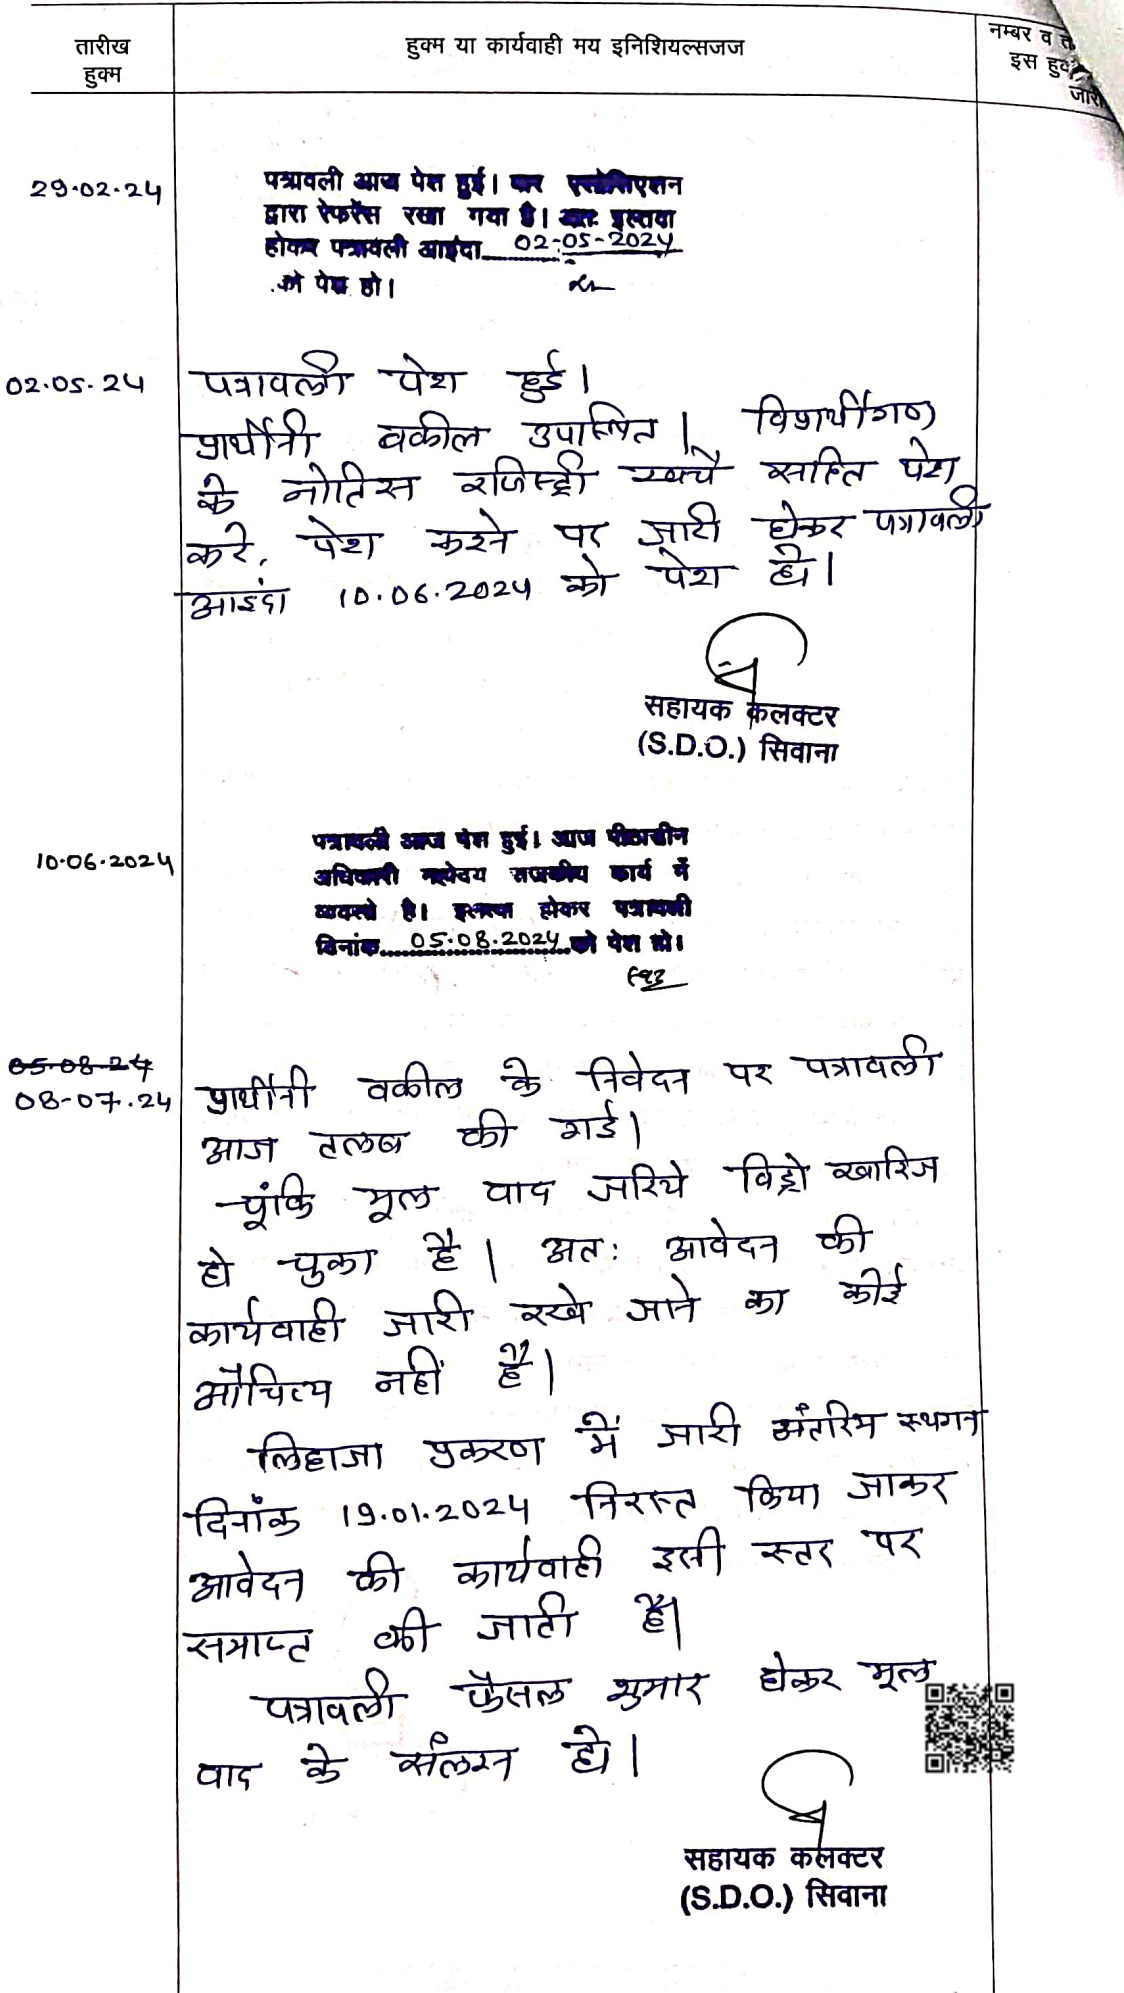 तारीख
हुक्म
हुक्म या कार्यवाही मय इनिशियल्सजज
नम्बर व
इस
जारी
29.02.24
पत्रावली आज पेश हुई। बार एसोसिएशन
द्वारा रेफरेंस रखा गया है। अतः इस्तवा
होकर पत्रावली आईंदा 02-05-2024
को पेश हो।
02.05.24
पत्रावली पेश हुई।
प्रार्थीनी वकील उपस्थित। विप्रार्थीगण
के नोटिस रजिस्ट्री खर्चे सहित पेश
करे, पेश करने पर जारी होकर पत्रावली
आइंदा 10.06.2024 को पेश हो।
सहायक कलक्टर
(S.D.O.) सिवाना
10.06.2024
पत्रावली आज पेश हुई। आज पीठासीन
अधिकारी महोदय राजकीय कार्य में
व्यस्त है। इस्तवा होकर पत्रावली
दिनांक 05.08.2024 को पेश हो।
05.08.24
08-07.24
प्रार्थीनी वकील के निवेदन पर पत्रावली
आज तलब की गई।
चूंकि मूल वाद जरिये विड्रो खारिज
हो चुका है। अतः आवेदन की
कार्यवाही जारी रखे जाने का कोई
औचित्य नहीं है।
लिहाजा प्रकरण में जारी अंतरिम स्थगन
दिनाँक 19.01.2024 निरस्त किया जाकर
आवेदन की कार्यवाही इसी स्तर पर
समाप्त की जाती है।
पत्रावली फैसल शुमार होकर मूल
वाद के संलग्न हो।
सहायक कलक्टर
(S.D.O.) सिवाना